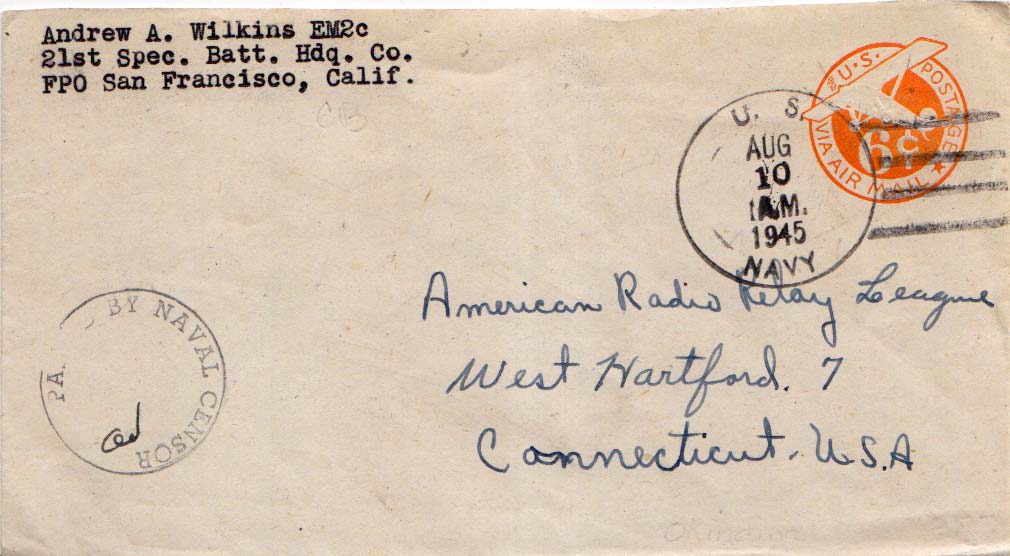 Andrew A. Wilkins EM2c
21st Spec. Batt. Hdq. Co.
FPO San Francisco, Calif.
CB
U.S. POSTAGE
6¢
VIA AIR MAIL
U. S.
AUG
10
A.M.
1945
NAVY
American Radio Relay League
West Hartford. 7
Connecticut. U.S.A
PA BY NAVAL CENSOR
Okinawa